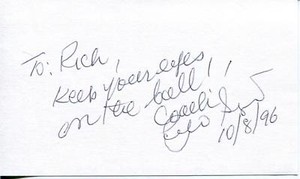 To: Rich,
Keep your eyes
on the ball!,
Coach
10/8/96